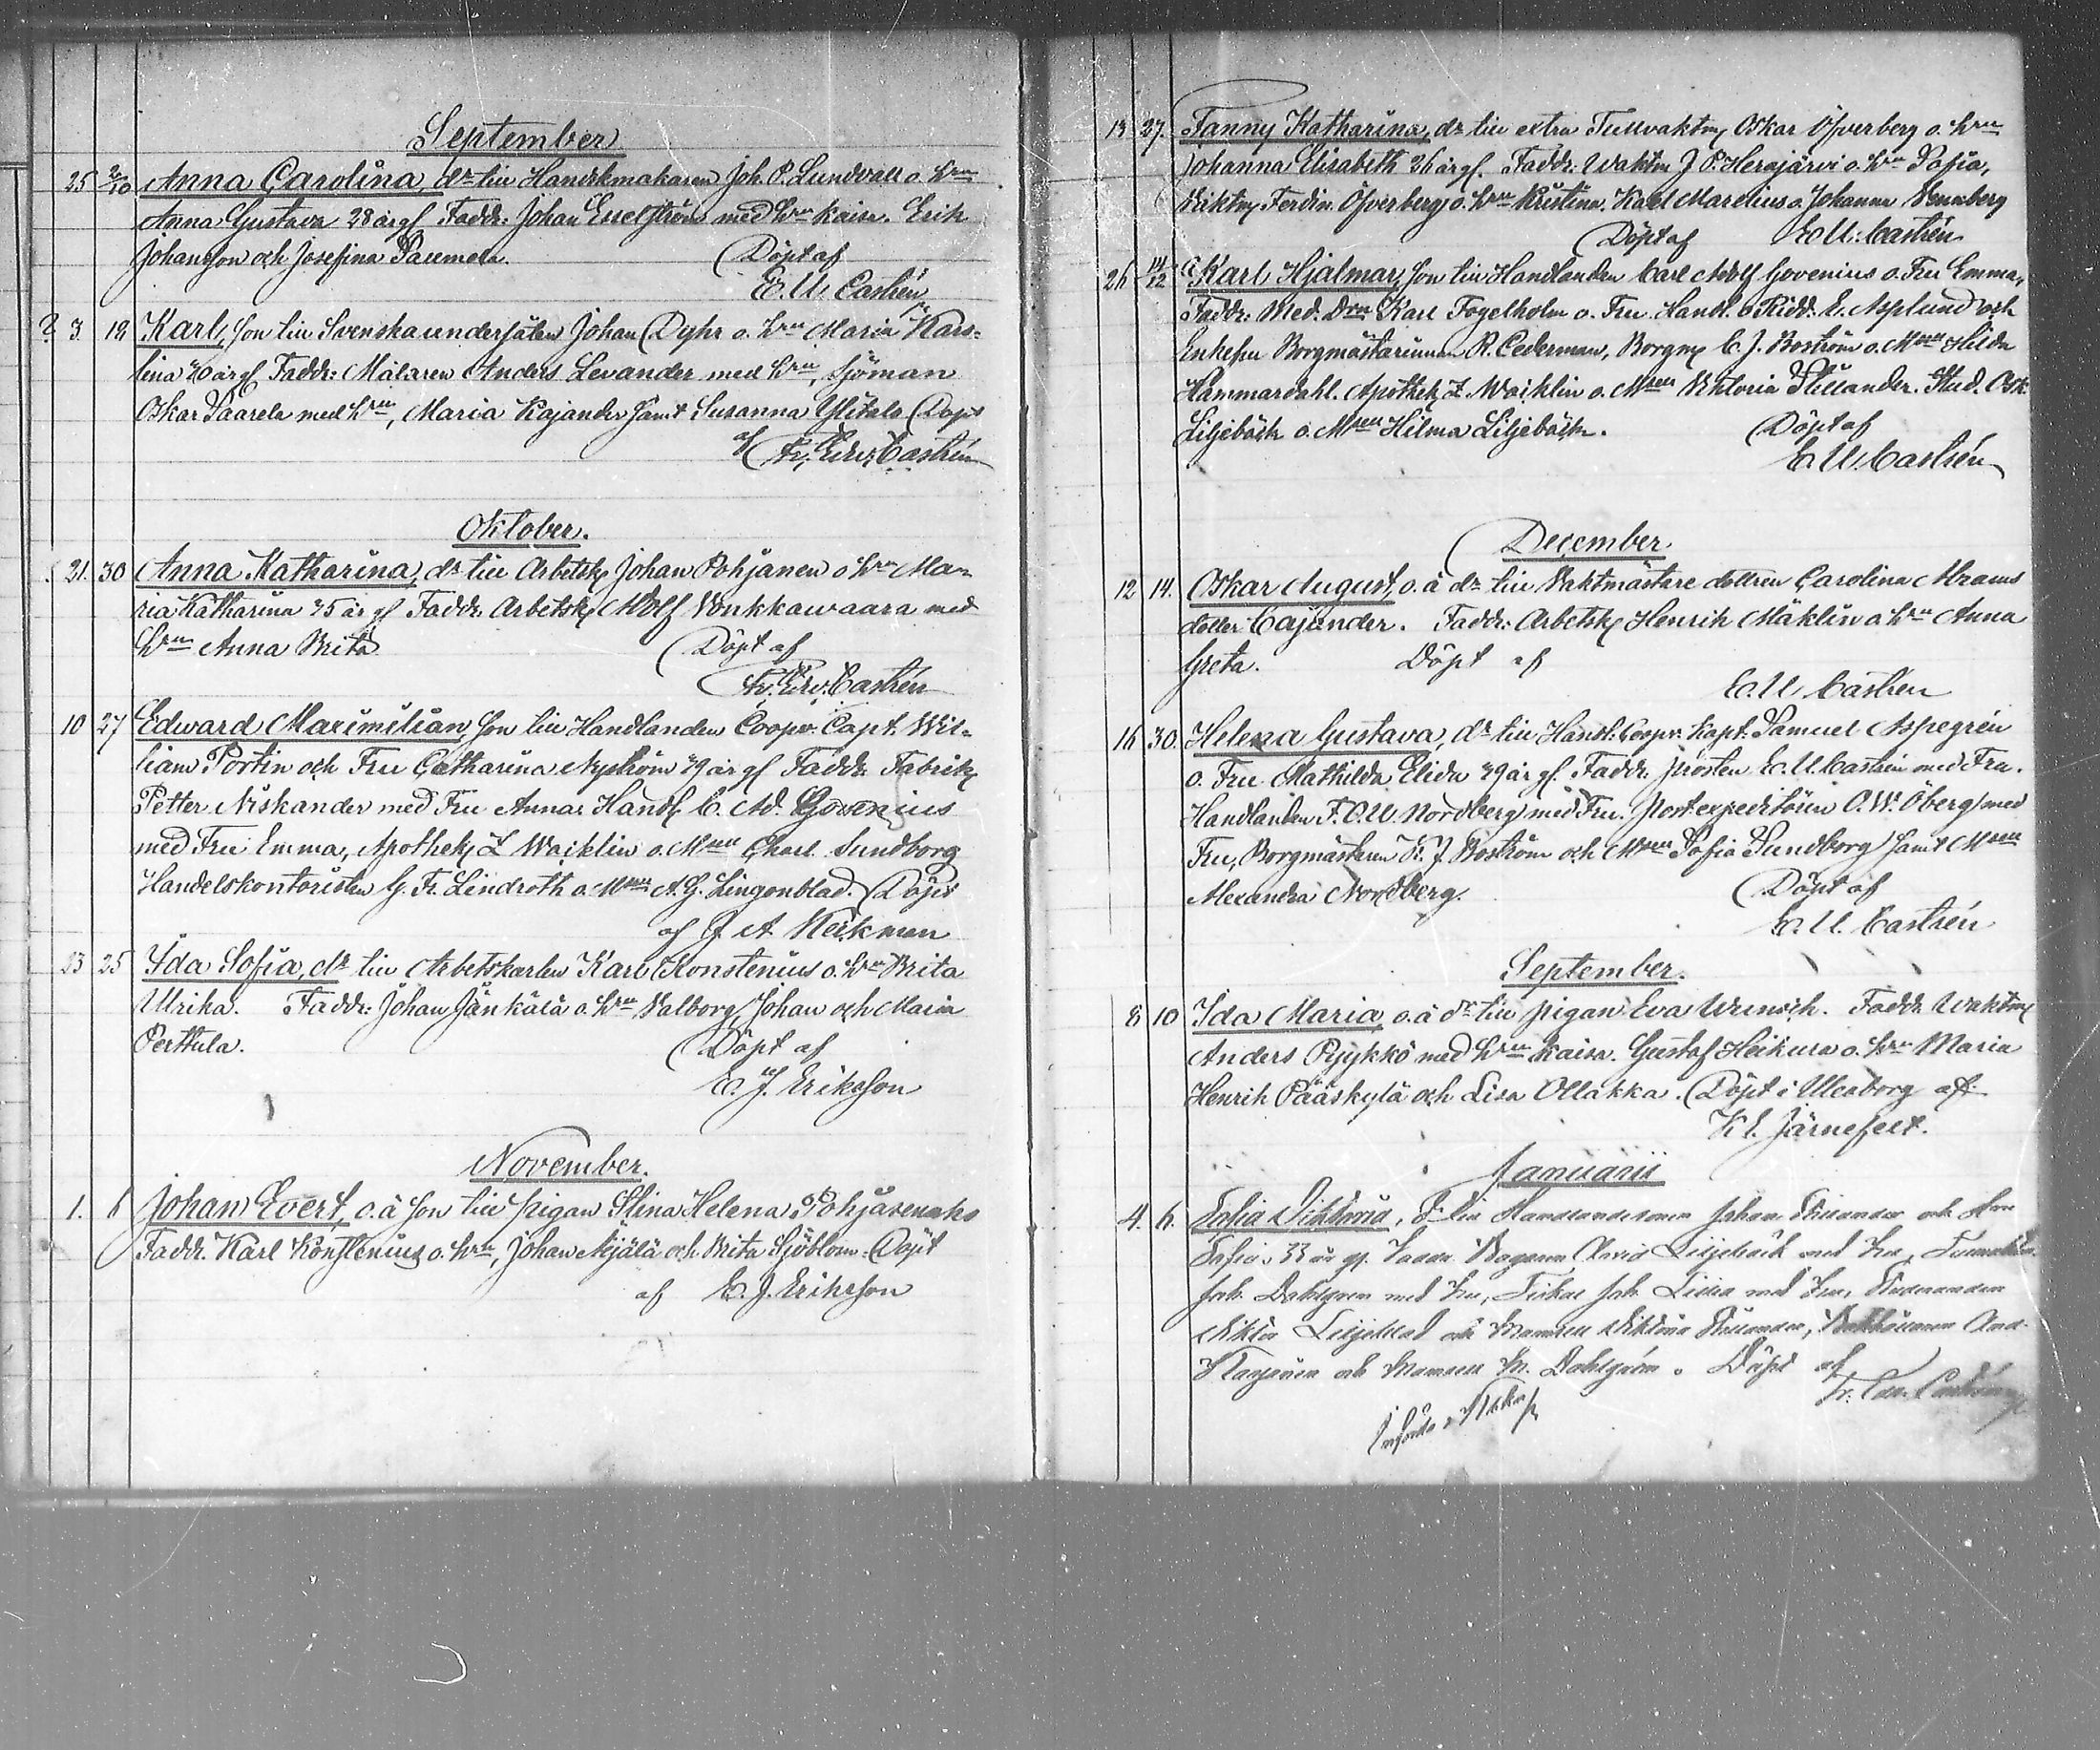 September
25 2/10 Anna Carolina, dr till Handskmakaren Joh. P. Lundvall o. hru
Anna Gustava 28 år gl. Faddr: Johan Esselström med hru Kaisa. Erik
Johansson och Josefina
Döpt af
E. U. Castrén
3 19 Karl, son till Svenska undersåten Johan Dyhr o. hru Maria Karo-
lina år gl Faddr: Målaren Anders Levander med hru, Sjöman
Oskar Saarela med hru, Maria Kajander samt Susanna Ylitalo Döpt
af Fr. Edv. Castrén
Oktober.
21. 30 Anna Katharina, dr till Arbetsk Johan Pohjanen o hru Ma-
ria Katharina 25 år gl Faddr. Arbetsk Adolf Vonkkawaara med
hru Anna Brita
Döpt af
Fr. Edv. Castrén
10 27 Edward Maximilian, son till Handlanden Coopv. Capt. Wil-
liam Portin och Fru Catharina Nyström 29 år gl Faddr. Fabrik
Petter Niskander med Fru Anna. Handl C. Ad. Govenius
med Fru Emma, Apothek Z Waiklin o. Msell Charl. Sundborg
Handelskontoristen G. Fr. Lindroth o. Msell A. G. Lingonblad. Döpt
af J. A. Heikman
23 25 Ida Sofia, dr till Arbetskarlen Karl Konstenius o. hru Brita
Ulrika. Faddr: Johan Jänkälä o. hru Valborg, Johan och Maria
Perttula.
Döpt af
E. J. Eriksson
November.
1. 6 Johan Evert, o. ä son till pigan Stina Helena
Faddr. Karl Konstenius o. hru, Johan Nyjälä och Brita Sjöblom. Döpt
af E. J. Eriksson
13 27. Fanny Katharina, dr till extra Tullvaktm Oskar Öfverberg o. hru
Johanna Elisabeth 26 år gl. Faddr: Waktm J. P. Herajärvi o. hru Sofia,
Ferdin. Öfverberg o. hru Kristina. Karl Marelius o. Johanna Wennberg
Döpt af E. U. Castrén
26 /12 Karl Hjalmar, son till Handlanden Carl Adolf Govenius o. Fru Emma,
Faddr: Med. Dren Karl Fogelholm o. Fru. Handl. o Ridd. E. Asplund och
Enkefru Borgmästarinnan R. Cederman, Borgm C. J. Boström o. Msell Hilda
Hammardahl. Apothek Z. Waiklin o. Msell Viktoria Stillander. Stud. Osk.
Liljebäck o. Msell Hilma Liljebäck.
Döpt af
E. U. Castrén
December
12 14. Oskar August, o. ä dr till Vaktmästare dottren Carolina Abrams
dotter Cajander. Faddr: Arbetsk Henrik Mäklin o hru Anna
Greta. Döpt af
E. U. Castrén
16 30. Helena Gustava, dr till Handl. Coopv. Kapt. Samuel Aspegrén
o. Fru Mathilda Elida 29 år gl. Faddr. Prosten E. U. Castrén med Fru.
Handlanden F. O. U. Nordberg med Fru. Postexpeditören O. W. Öberg med
Fru, Borgmästaren K. J. Boström och Msell Sofia Sundborg samt Msell
Alexandra Nordberg.
Döpt af
E. U. Castrén
September.
8 10 Ida Maria, o. ä dr till pigan Eva Faddr. Waktm
Anders Pyykkö med hru Kaisa. Gustaf Heikura o. hru Maria
Henrik Pääskylä och Lisa Ollakka. Döpt i Uleåborg af
K E. Järnefelt.
Januarii
4. 6. Sofia Viktoria, dr till Handlanden Johan och Fru
Sofia 33 år gl. Faddr David Liljebäck med Fru,
Joh. Dahlgren med Fru, Joh. med Fru,
Viktor Liljeblad och Mamsell Viktoria
och Mamsell M. Dahlgren. Döpt af
Fr. Edv. Castrén